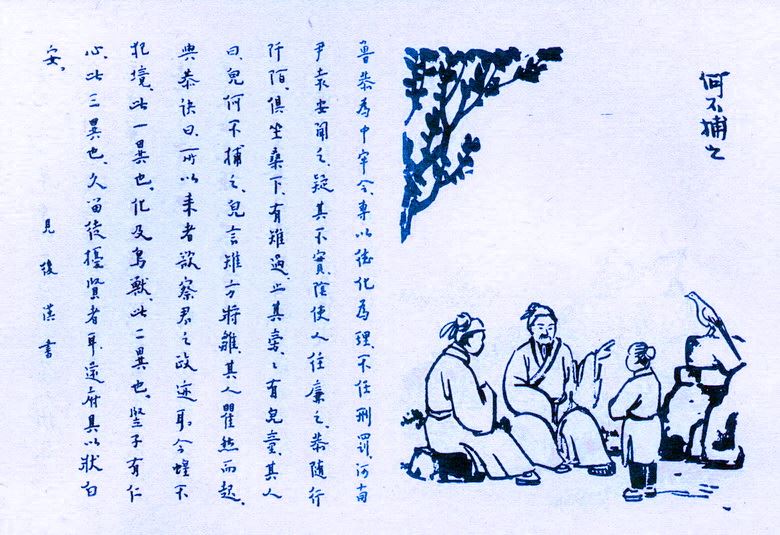 何不捕之
魯恭為中牢令、專以德化為理不任刑罰河南
尹袁安聞之、疑其不實、陰使人往廉之、恭随行
阡陌、俱坐桑下、有雉過、止其旁、〻有兒童、其人
曰、兒何不捕之、兒言雉方將雛、其人瞿然而起、
與恭訣曰、所以來者欲察君之政迹耳、今螳不
犯境、此一異也、化及鳥獸、此二異也、竪子有仁
心、此三異也、久留徒擾賢者耳、還府具以狀白
安。
見後漢書